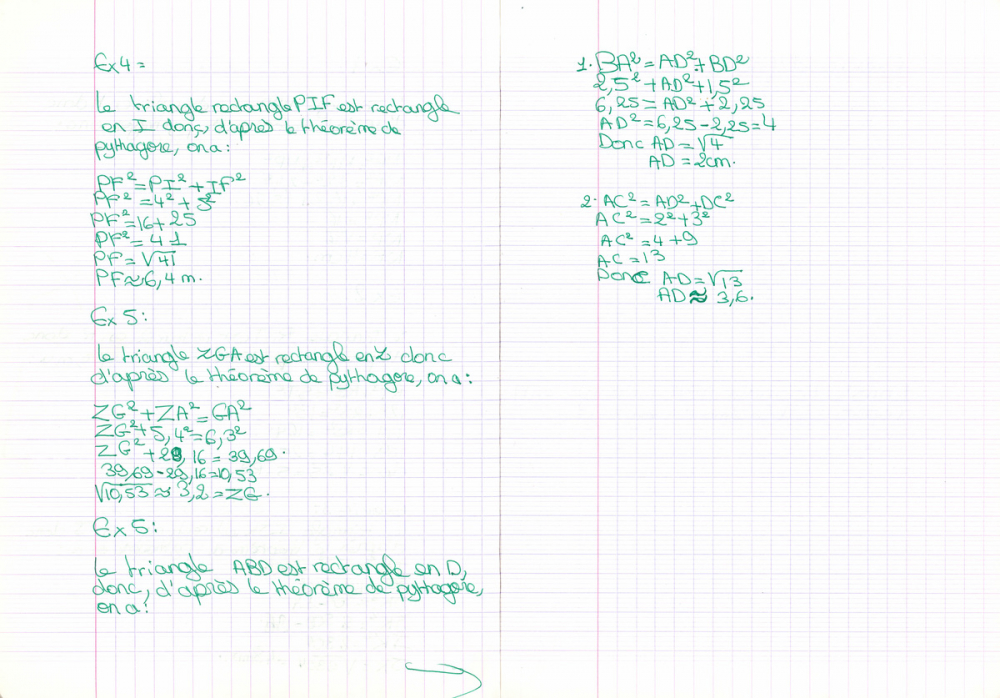 Ex4=
Le triangle rectangle PIF est rectangle
en I donc, d'après le théorème de
pythagore, on a:
PF²=PI²+IF²
PF²=4²+5²
PF²=16+25
PF²=41
PF=√41
PF≈6,4m.
Ex 5:
Le triangle ZGA est rectangle en Z donc
d'après le théorème de pythagore, on a:
ZG²+ZA²=GA²
ZG²+5,4²=6,3²
ZG²+29,16=39,69.
39,69-29,16=10,53
√10,53≈3,2=ZG.
Ex 5:
Le triangle ABD est rectangle en D,
donc, d'après le théorème de pythagore,
on a:
1. BA²=AD²+BD²
2,5²+AD²+1,5²
6,25=AD²+2,25
AD²=6,25-2,25=4
Donc AD=√4
AD=2cm.
2. AC²=AD²+DC²
AC²=2²+3²
AC²=4+9
AC=13
Donc AD=√13
AD≈3,6.